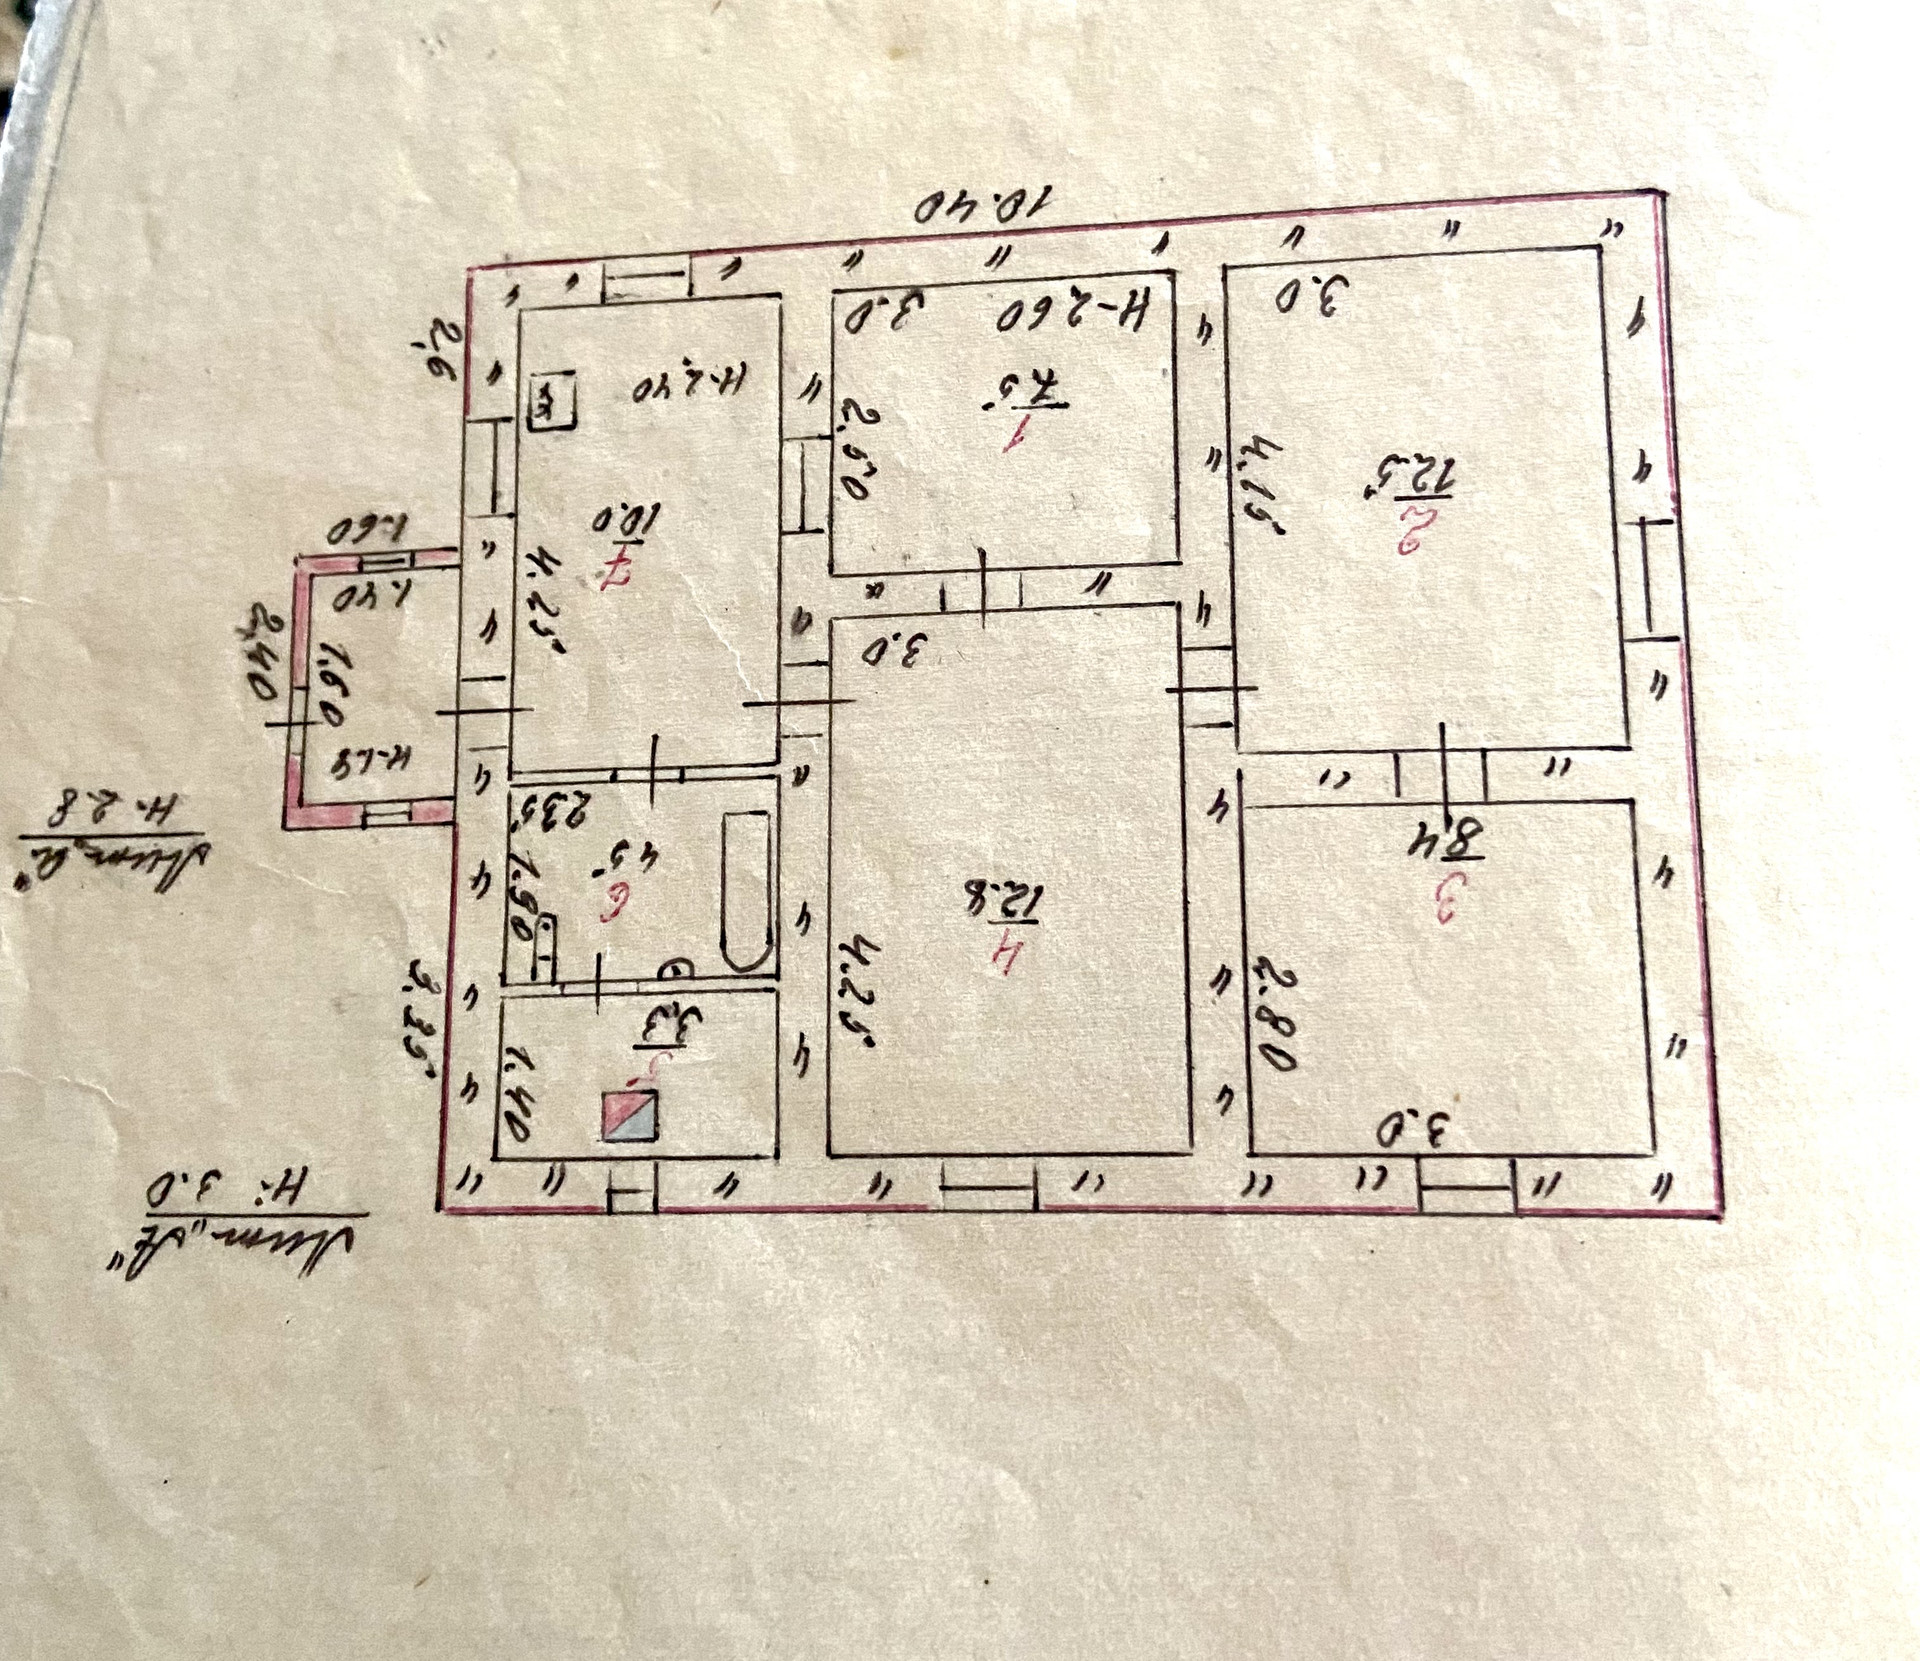 Лит„А"
Н-3.0
3.0
3
8.4
2.80
4
12.8
4.25
3.0
5
3.3
1.40
3,35
6
4.5
1.90
2.35
Лит„а"
Н-2.8
2,40
1.60
1.40
1.60
2
12.5
4.15
3.0
1
7.5
2.50
Н-2,60
3.0
7
10.0
4.25
Н-2,40
2,6
10.40